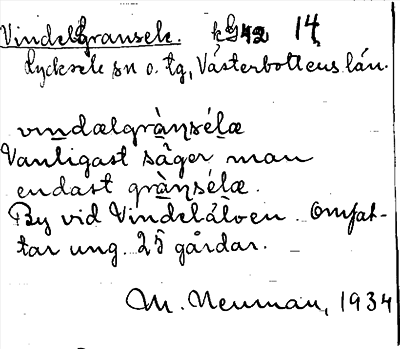 Vindelgransele. 14
Lycksele sn o. tg, Västerbottens län.
vindælgràṇsélæ
Vanligast säger man
endast gràṇsélæ.
By vid Vindelälven. Omfat-
tar ung. 25 gårdar.
M. Neuman, 1934